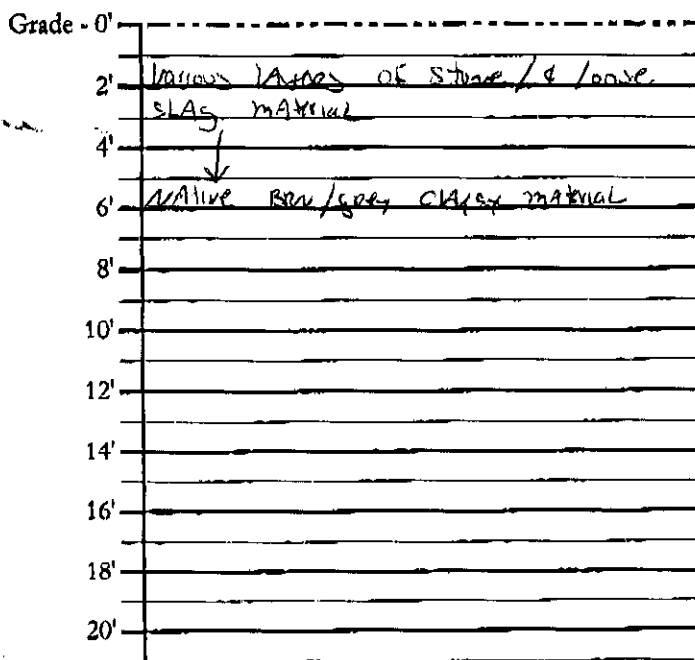 Grade - 0'
2' Various layers of Stone / & loose
SLAG MATERIAL
4'
6' NATIVE BRN/grey CLAYEY MATERIAL
8'
10'
12'
14'
16'
18'
20'